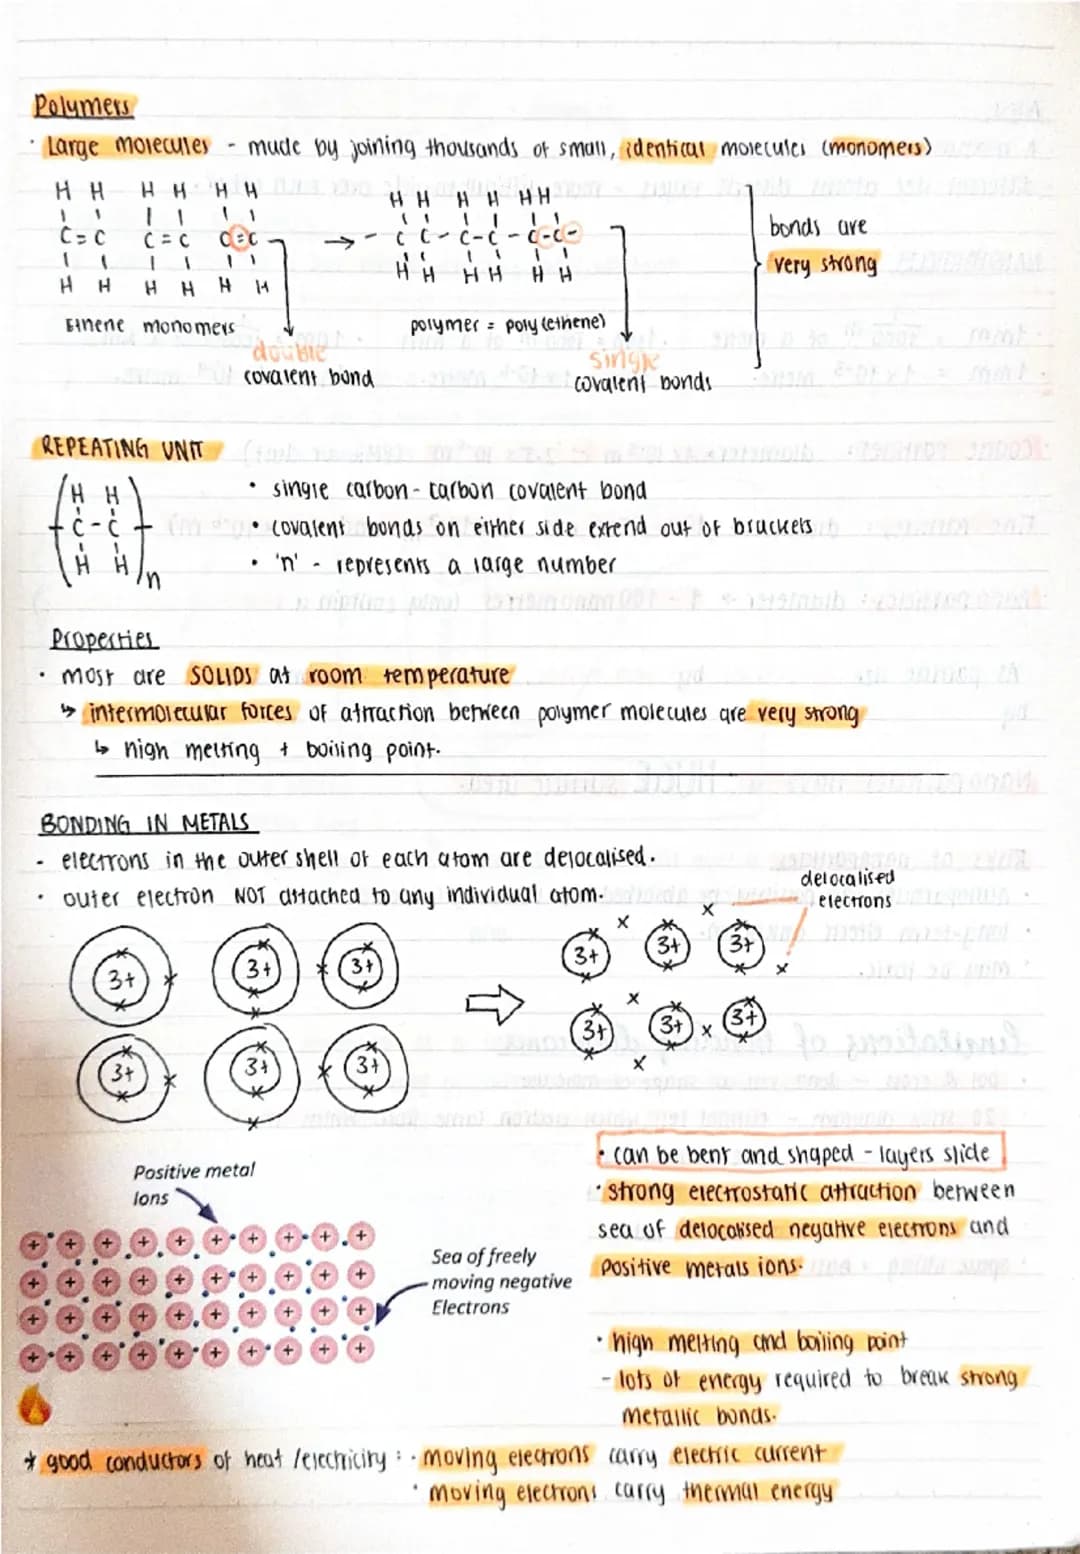 Polymers
· Large molecules - made by joining thousands of small, identical molecules (monomers)
H H H H H H
C = C C = C C = C
H H H H H H
→ H H H H H H
- C C - C - C - C - C -
H H H H H H
bonds are
very strong
Ethene monomers
double
covalent bond
polymer = poly(ethene)
single
covalent bonds
REPEATING UNIT
H H
C - C
H H n
· single carbon - carbon covalent bond
· covalent bonds on either side extend out of brackets
· 'n' - represents a large number
Properties
· most are SOLIDS at room temperature
↳ intermolecular forces of attraction between polymer molecules are very strong
↳ high melting + boiling point.
BONDING IN METALS
- electrons in the outer shell of each atom are delocalised.
· outer electron NOT attached to any individual atom.
delocalised
electrons
3+ 3+ 3+ ⇒ 3+ 3+ 3+
3+ 3+ 3+ 3+ 3+ 3+
Positive metal
Ions
Sea of freely
moving negative
Electrons
· can be bent and shaped - layers slide
· strong electrostatic attraction between
sea of delocalised negative electrons and
positive metals ions.
· high melting and boiling point
- lots of energy required to break strong
metallic bonds.
* good conductors of heat / electricity : · moving electrons carry electric current
· moving electrons carry thermal energy